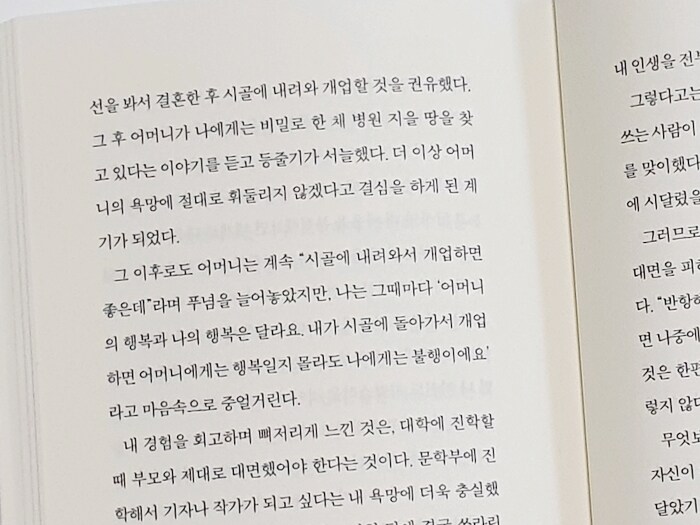 선을 봐서 결혼한 후 시골에 내려와 개업할 것을 권유했다.
그 후 어머니가 나에게는 비밀로 한 채 병원 지을 땅을 찾
고 있다는 이야기를 듣고 등줄기가 서늘했다. 더 이상 어머
니의 욕망에 절대로 휘둘리지 않겠다고 결심을 하게 된 계
기가 되었다.
그 이후로도 어머니는 계속 “시골에 내려와서 개업하면
좋은데”라며 푸념을 늘어놓았지만, 나는 그때마다 ‘어머니
의 행복과 나의 행복은 달라요. 내가 시골에 돌아가서 개업
하면 어머니에게는 행복일지 몰라도 나에게는 불행이에요’
라고 마음속으로 중얼거린다.
내 경험을 회고하며 뼈저리게 느낀 것은, 대학에 진학할
때 부모와 제대로 대면했어야 한다는 것이다. 문학부에 진
학해서 기자나 작가가 되고 싶다는 내 욕망에 더욱 충실했
내 인생을 전부
그렇다고는
쓰는 사람이
를 맞이했다
에 시달렸을
그러므로
대면을 피하
다. “반항하
면 나중에
것은 한편
렇지 않다
무엇보
자신이
달았기